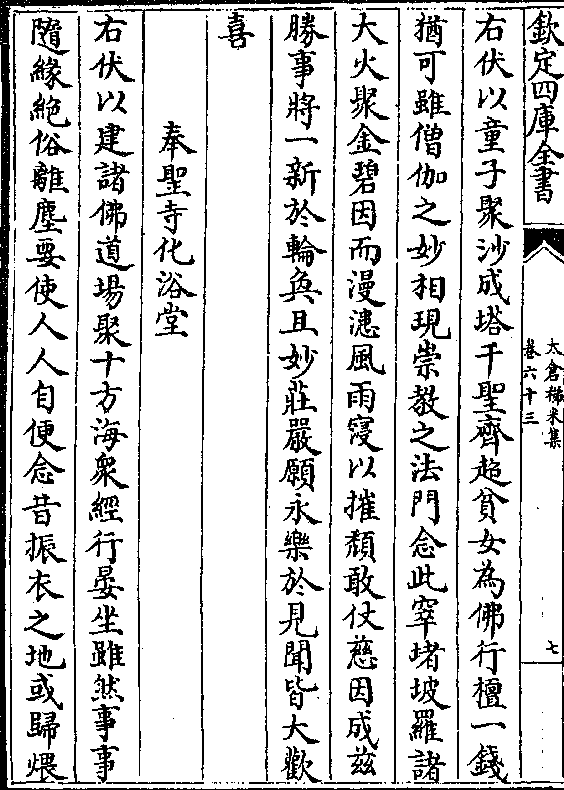 欽定四庫全書
太倉稊米集
卷六十三
七
右伏以童子聚沙成塔千聖齊超貧女為佛行檀一錢
猶可雖僧伽之妙相現崇教之法門念此窣堵坡羅諸
大火聚金碧因而漫漶風雨寖以摧頽敢仗慈因成兹
勝事將一新於輪奐且妙莊嚴願永樂於見聞皆大歡
喜
奉聖寺化浴堂
右伏以建諸佛道場聚十方海衆經行晏坐雖然事事
隨緣絶俗離塵要使人人自便念昔振衣之地或歸煨